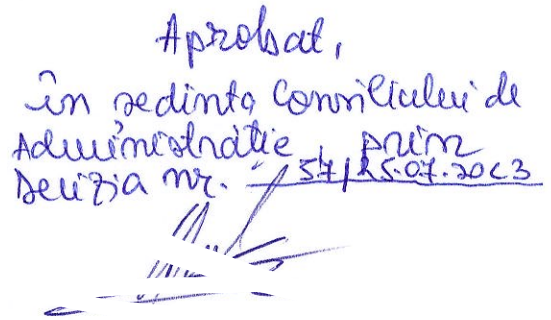 Aprobat,
în sedinta Consiliului de
Administratie, prin
Decizia nr. 57/25.07.2023